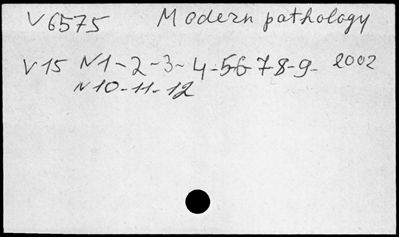 V6575 Modern pathology
V15 N1-2-3-4-56-78-9- 2002
N10-11-12